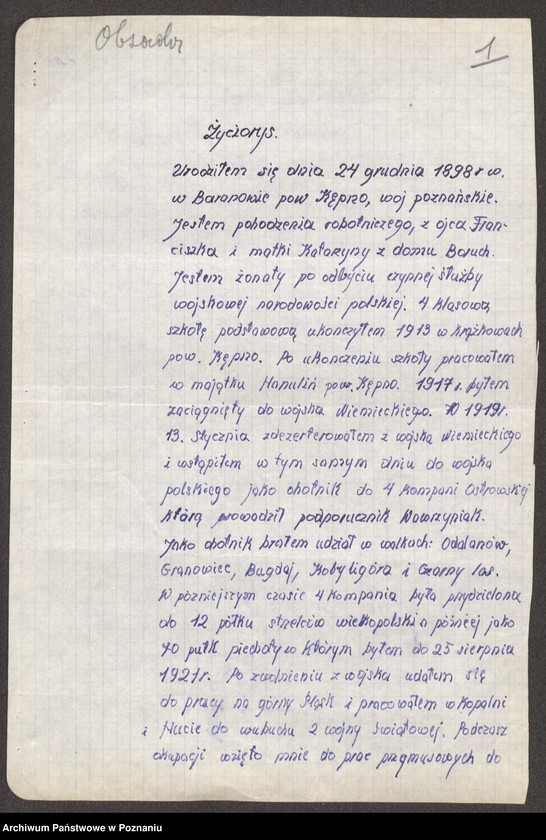 Obsada
1
Życiorys.
Urodziłem się dnia 24 grudnia 1898 r w.
w Baranowie pow Kępno, woj poznańskie.
Jestem pohodzenia robotniczego, z ojca Fran-
ciszka i matki Katarzyny z domu Baruch.
Jestem żonaty po odbyciu czynnej służby
wojskowej narodowości polskiej. 4 klasową
szkołę podstawową ukończyłem 1913 w Krążkowach
pow. Kępno. Po ukończeniu szkoły pracowałem
w majątku Hanulin pow. Kępno. 1917 r. byłem
zaciągnięty do wojska Niemieckiego. W 1919 r.
13. stycznia zdezerterowałem z wojska Niemieckiego
i wstąpiłem w tym samym dniu do wojska
polskiego jako ohotnik do 4 kompani Ostrowskiej
którą prowodził podporucznik Wawrzyniak.
Jako ohotnik brałem udział w walkach: Odolanów,
Granowiec, Bogdaj, Kobyligóra i Czarny las.
W pózniejszym czasie 4 kompania była przydzielona
do 12 półku strzelców wielkopolski a póżnéej jako
70 pułk piechoty w którym byłem do 25 sierpnia
1921 r. Po zwolnieniu z wojska udałem się
do pracy na górny Śląsk i pracowałem w kopalni
i Hucie do wubuchu 2 wojny światowej. Podczasz
okupacji wzięto mnie do prac przymusowych do
Archiwum Państwowe w Poznaniu